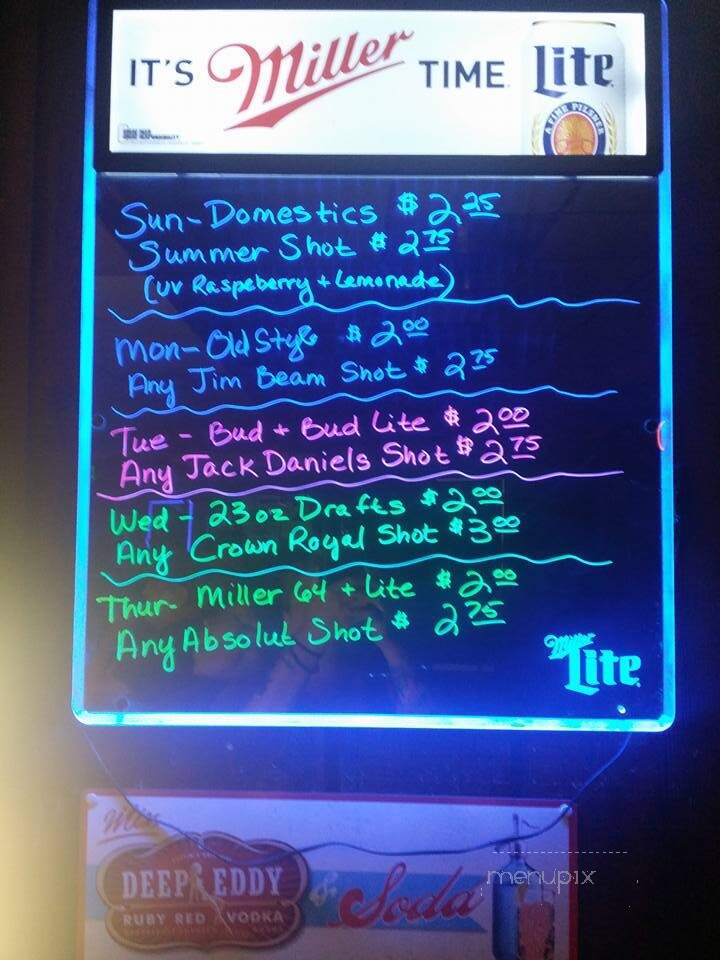 IT'S Miller TIME Lite
A FINE PILSNER
Sun-Domestics $2.25
Summer Shot $2.75
(UV Raspeberry + Lemonade)
Mon-Old Style $2.00
Any Jim Beam Shot $2.75
Tue - Bud + Bud Lite $2.00
Any Jack Daniels Shot $2.75
Wed - 23 oz Drafts $2.00
Any Crown Royal Shot $3.00
Thur- Miller 64 + Lite $2.00
Any Absolut Shot $2.75
Miller
Lite
DEEP EDDY
RUBY RED VODKA
& Soda
menupix